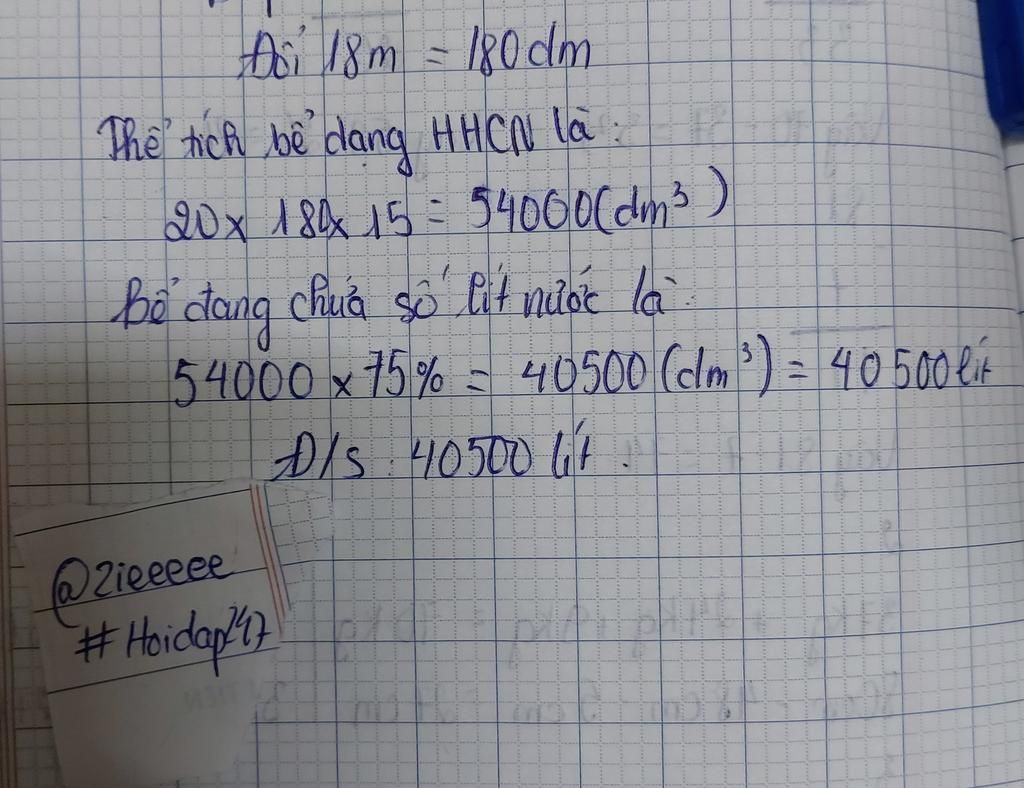 Đổi 18m = 180dm
Thể tích bể dạng HHCN là:
20 x 180 x 15 = 54000 (dm³)
Bể đang chứa số lít nước là:
54000 x 75% = 40500 (dm³) = 40 500 lít
Đ/s: 40500 lít.
@2ieeeee
#Hoidap247